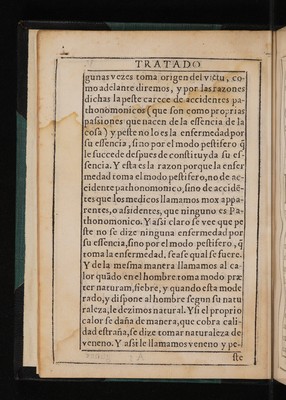 TRATADO
gunas vezes toma origen del victu, co-
mo adelante diremos, y por las razones
dichas la peste carece de accidentes pa-
thonomonicos (que son como proprias
passiones que nacen de la essencia de la
cosa) y peste no lo es la enfermedad por
su essencia, sino por el modo pestifero q̃
le succede despues de constituyda su es-
sencia. Y esta es la razon porque la enfer
medad toma el modo pestifero, no de ac-
cidente pathonomonico, sino de accidẽ-
tes que los medicos llamamos mox appa-
rentes, o assidentes, que ninguno es Pa-
thonomonico. Y assi claro se vee que pe
ste no se dize ninguna enfermedad por
su essencia, sino por el modo pestifero, q̃
toma la enfermedad, sease qual se fuere.
Y de la mesma manera llamamos al ca-
lor quãdo en el hombre toma modo præ
ter naturam, fiebre, y quando esta mode
rado, y dispone al hombre segun su natu
raleza, le dezimos natural. Y si el proprio
calor se daña de manera, que cobra cali-
dad estraña, se dize tomar naturaleza de
veneno. Y assi le llamamos veneno y pe-
ste